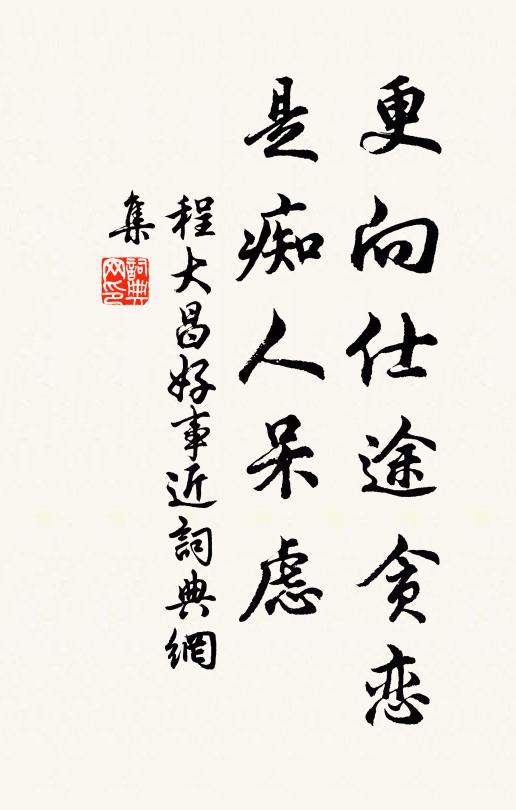 更向仕途贪恋
是痴人呆虑
程大昌好事近词典網
集
詞典
网印